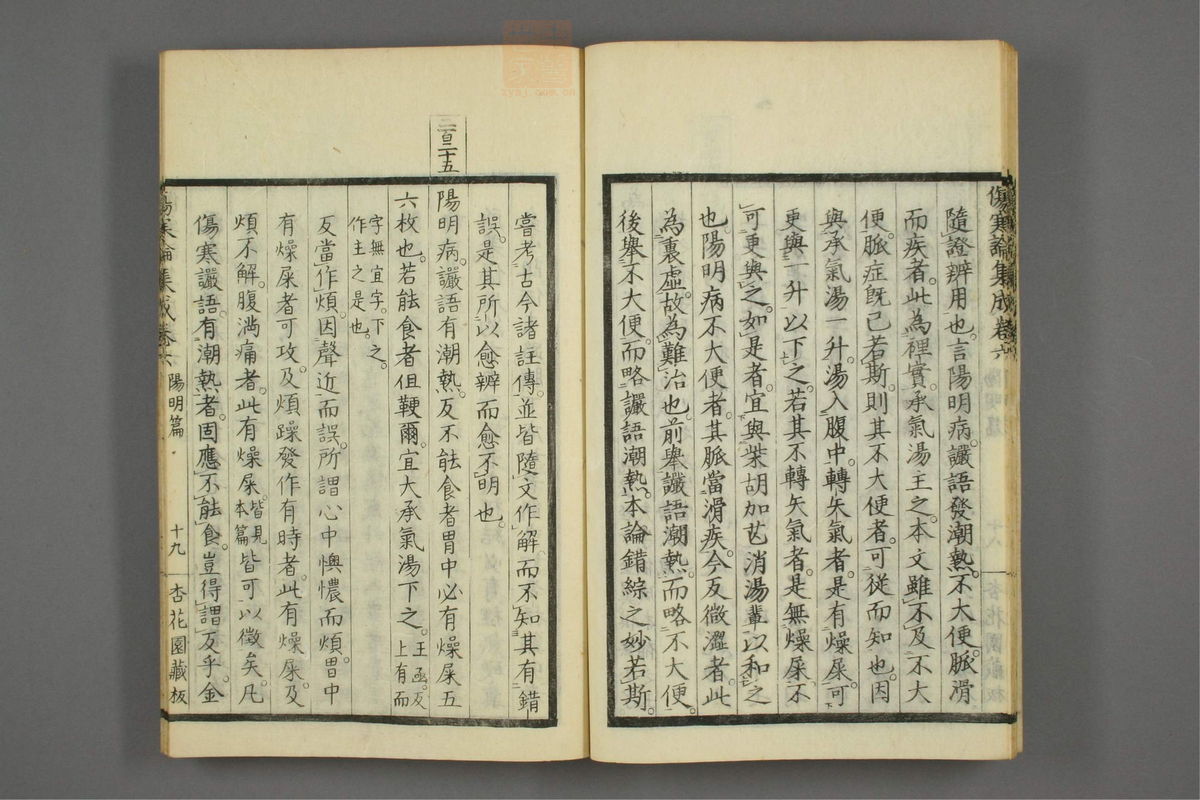 傷寒論集成卷六
隨證辨用也。言陽明病。讝語發潮熱。不大便。脈滑
而疾者。此為裡實。承氣湯主之。本文雖不及不大
便。脈症既已若斯。則其不大便者。可從而知也。因
與承氣湯一升。湯入腹中。轉矢氣者。是有燥屎。可
更與一升以下之。若其不轉矢氣者。是無燥屎。不
可更與之。如是者。宜與柴胡加芒消湯輩以和之
也。陽明病不大便者。其脈當滑疾。今反微澀者。此
為裏虛。故為難治也。前舉讝語潮熱。而略不大便。
後舉不大便。而略讝語潮熱。本論錯綜之妙若斯。
嘗考古今諸註傳。並皆隨文作解。而不知其有錯
誤。是其所以愈辨而愈不明也。
二百二十五
陽明病。讝語有潮熱。反不能食者。胃中必有燥屎五
六枚也。若能食者但鞕爾。宜大承氣湯下之。王函。反上有而
字無宜字。下之。作主之是也。
反當作煩。因聲近而誤。所謂心中懊憹而煩。胃中
有燥屎者可攻。及煩躁發作有時者。此有燥屎。及
煩不解。腹滿痛者。此有燥屎。皆見本篇皆可以徵矣。凡
傷寒讝語。有潮熱者。固應不能食。豈得謂反乎。金
傷寒論集成卷六 陽明篇 十九 杏花園藏板